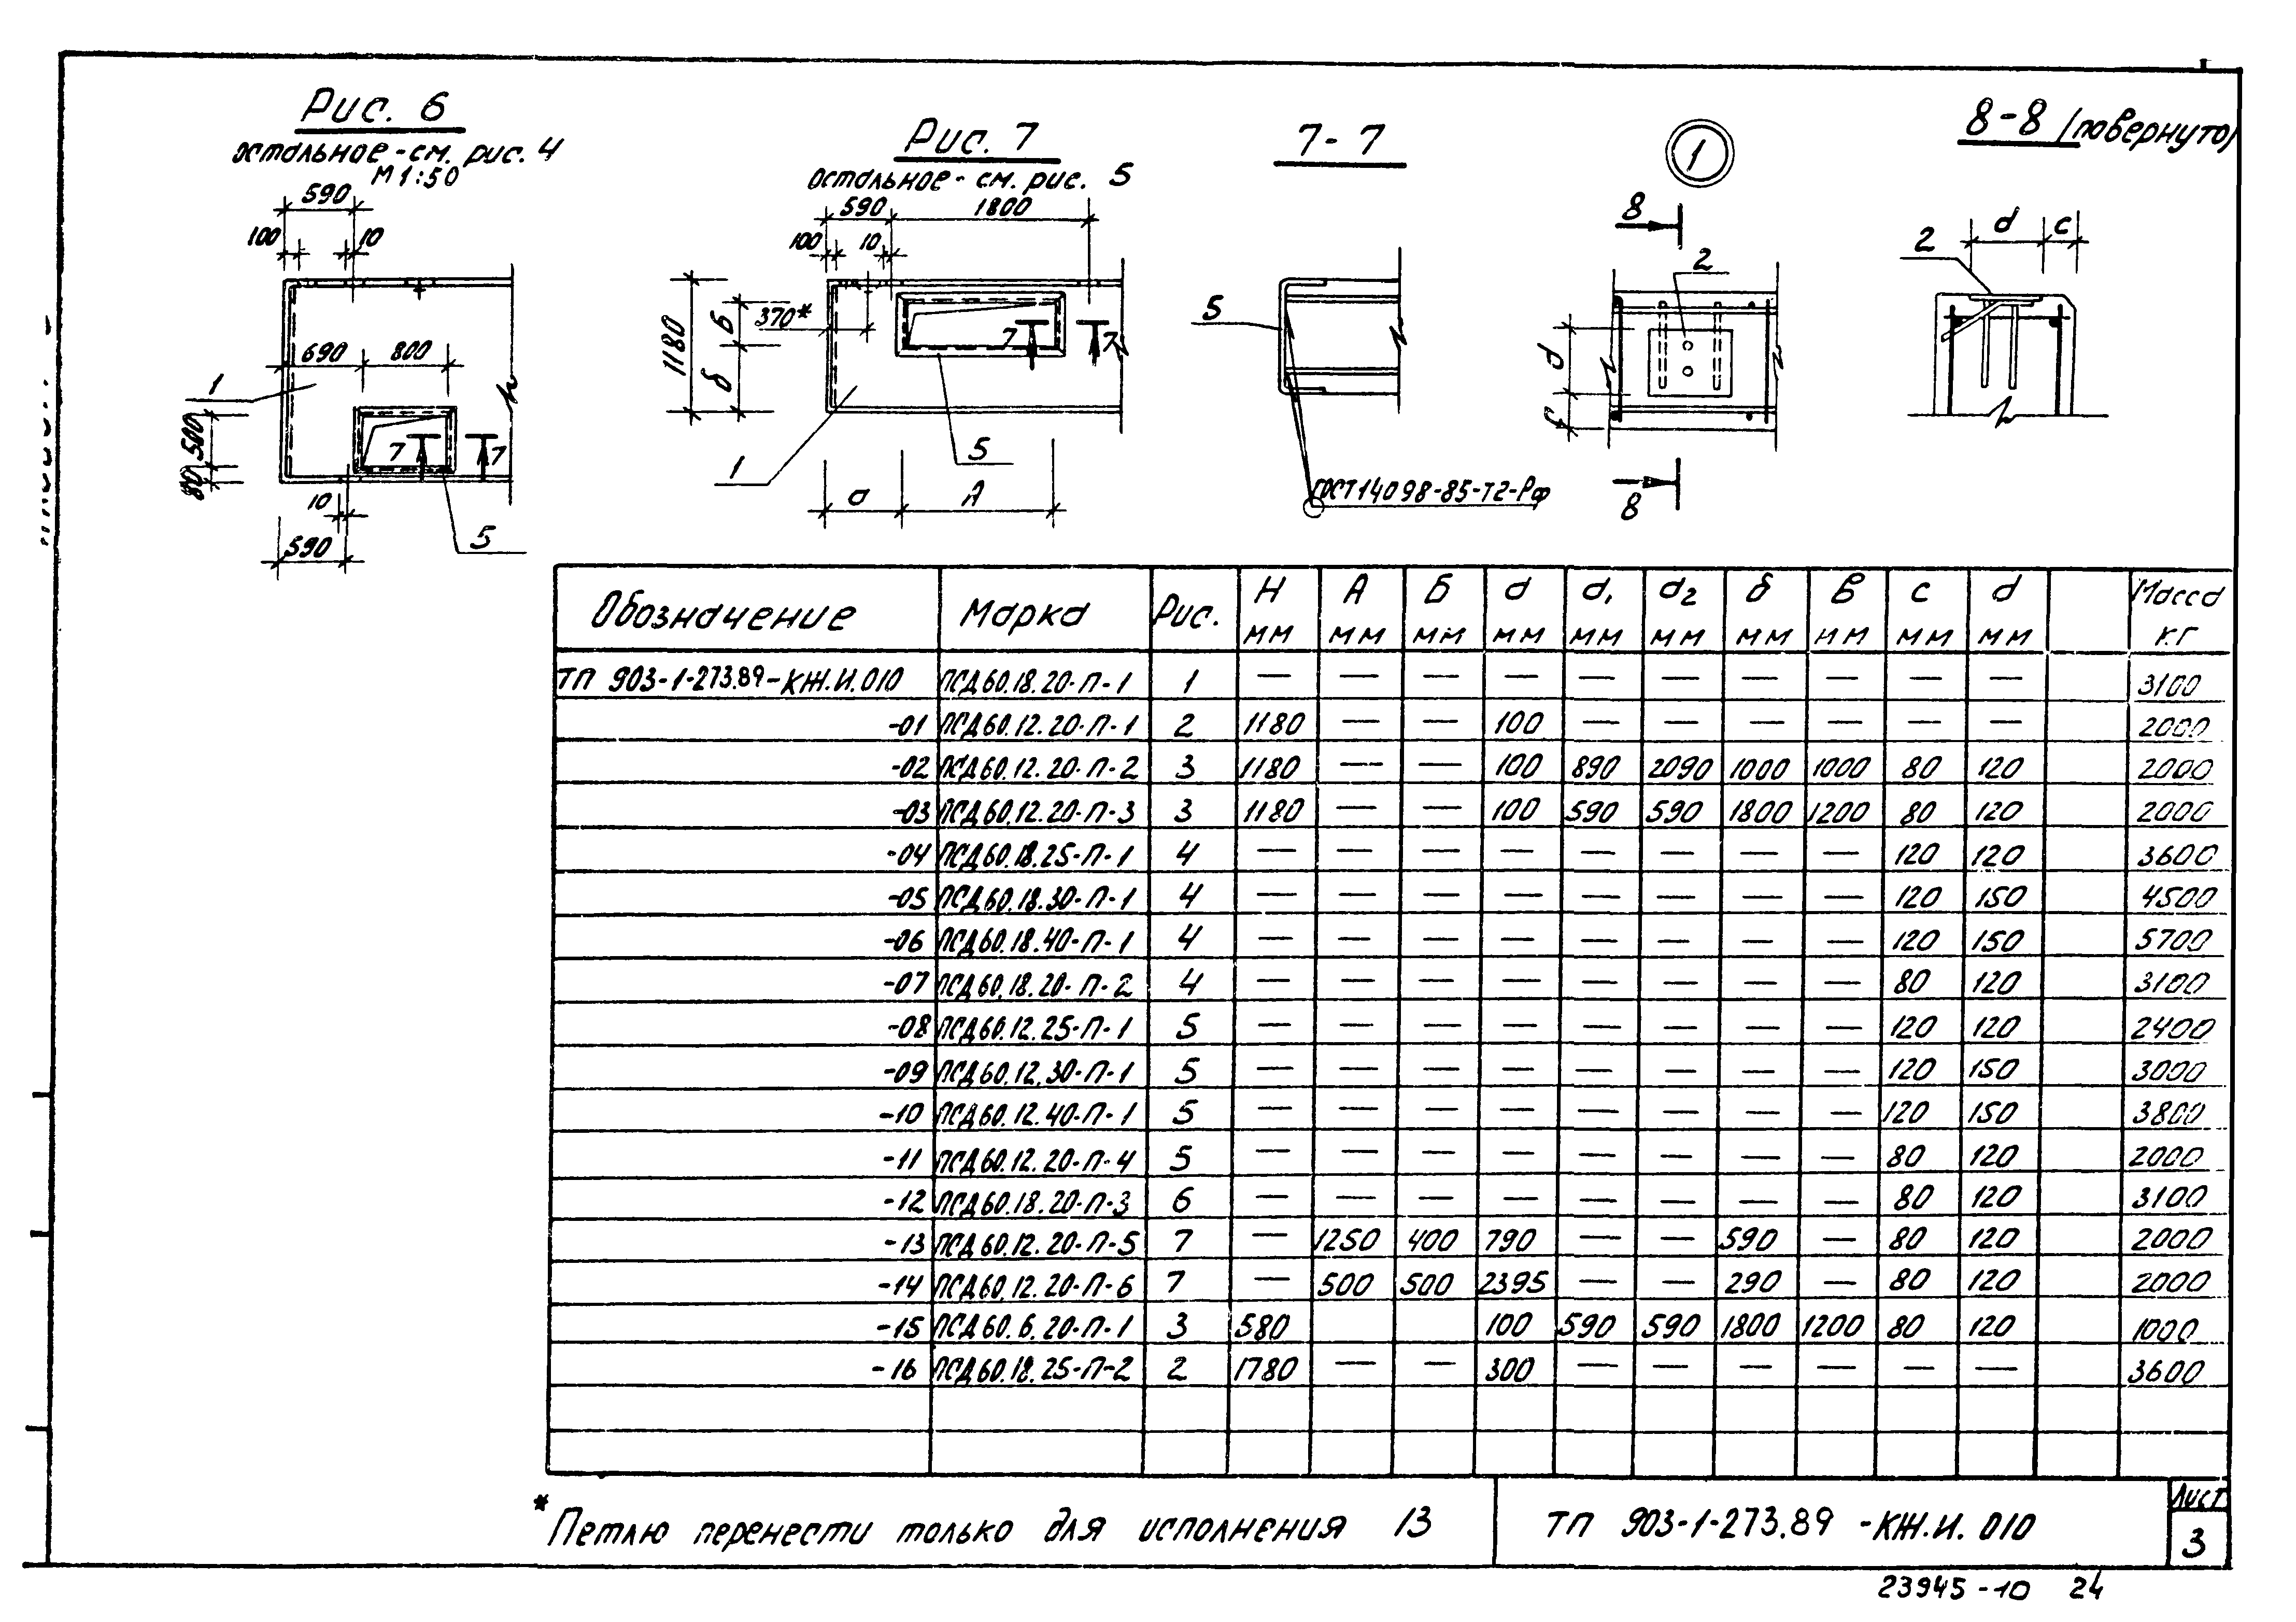 Рис. 6
остальное-см. рис. 4
М 1:50
590
100
10
690
800
1
500
80
7
7
10
590
5
Рис. 7
остальное - см. рис. 5
590
1800
100
10
370*
1180
Б
б
7
7
1
5
а
А
7-7
5
ГОСТ14098-85-Т2-Рф
1
8
2
d
c
8
8-8 (повернуто)
d
c
2
Обозначение Марка Рис. Н мм А мм Б мм а мм а1 мм а2 мм б мм в мм с мм d мм Масса кг
ТП 903-1-273.89-КЖ.И.010 ПСД60.18.20-П-1 1 — — — — — — — — — — 3100
-01 ПСД60.12.20-П-1 2 1180 — — 100 — — — — — — 2000
-02 ПСД60.12.20-П-2 3 1180 — — 100 890 2090 1000 1000 80 120 2000
-03 ПСД60.12.20-П-3 3 1180 — — 100 590 590 1800 1200 80 120 2000
-04 ПСД60.18.25-П-1 4 — — — — — — — — 120 120 3600
-05 ПСД60.18.30-П-1 4 — — — — — — — — 120 150 4500
-06 ПСД60.18.40-П-1 4 — — — — — — — — 120 150 5700
-07 ПСД60.18.20-П-2 4 — — — — — — — — 80 120 3100
-08 ПСД60.12.25-П-1 5 — — — — — — — — 120 120 2400
-09 ПСД60.12.30-П-1 5 — — — — — — — — 120 150 3000
-10 ПСД60.12.40-П-1 5 — — — — — — — — 120 150 3800
-11 ПСД60.12.20-П-4 5 — — — — — — — — 80 120 2000
-12 ПСД60.18.20-П-3 6 — — — — — — — — 80 120 3100
-13 ПСД60.12.20-П-5 7 — 1250 400 790 — — 590 — 80 120 2000
-14 ПСД60.12.20-П-6 7 — 500 500 2395 — — 290 — 80 120 2000
-15 ПСД60.6.20-П-1 3 580 100 590 590 1800 1200 80 120 1000
-16 ПСД60.18.25-П-2 2 1780 — — 300 — — — — — — 3600
* Петлю перенести только для исполнения 13
ТП 903-1-273.89 -КЖ.И.010
Лист
3
23945-10 24